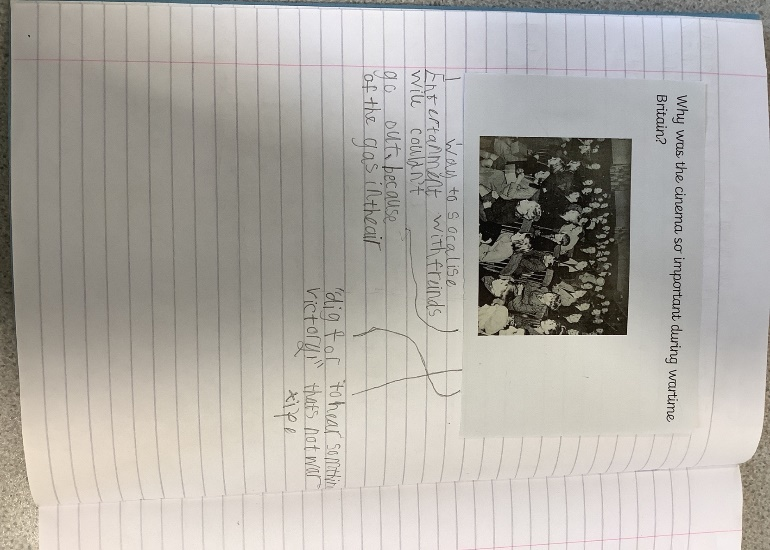 Why was the cinema so important during wartime
Britain?
way to socalise
Entertanment with freinds
wile coudnt
go out, because
of the gas in the air
"dig for
victory"
to hear somthin
thats not war